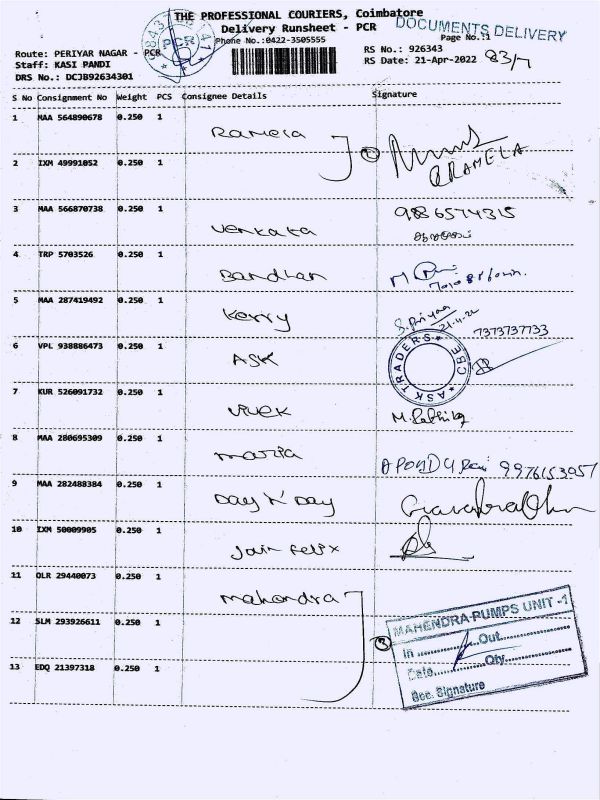 THE PROFESSIONAL COURIERS, Coimbatore
Delivery Runsheet - PCR
DOCUMENTS DELIVERY
Phone No.:0422-3505555
Page No.:1
Route: PERIYAR NAGAR - PCR
RS No.: 926343
83/7
Staff: KASI PANDI
RS Date: 21-Apr-2022
DRS No.: DCJB92634301
PCR
S No Consignment No Weight PCS Consignee Details Signature
1 MAA 564890678 0.250 1 Ramela
RAMELA
2 IXM 49991052 0.250 1
3 MAA 566870738 0.250 1 Venkata 9886574315
4 TRP 5703526 0.250 1 Bandhan
5 MAA 287419492 0.250 1 Kerry
21-4-22
6 VPL 938886473 0.250 1 ASK 7373737733
ASK TRADERS CBE
7 KUR 526091732 0.250 1 Vivek
8 MAA 280695309 0.250 1 Maria 9976153957
9 MAA 282488384 0.250 1 Day N Day
10 IXM 50009905 0.250 1 Jain Felix
11 OLR 29440073 0.250 1 Mahendra
12 SLM 293926611 0.250 1
13 EDQ 21397318 0.250 1
MAHENDRA PUMPS UNIT -1
In Out
Date Qty
Sec. Signature